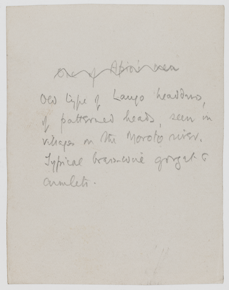 One of Apiri's men
Old type of Lango headdress,
of patterned beads, seen in
villages on the Moroto river.
Typical brasswire gorget &
armlets.